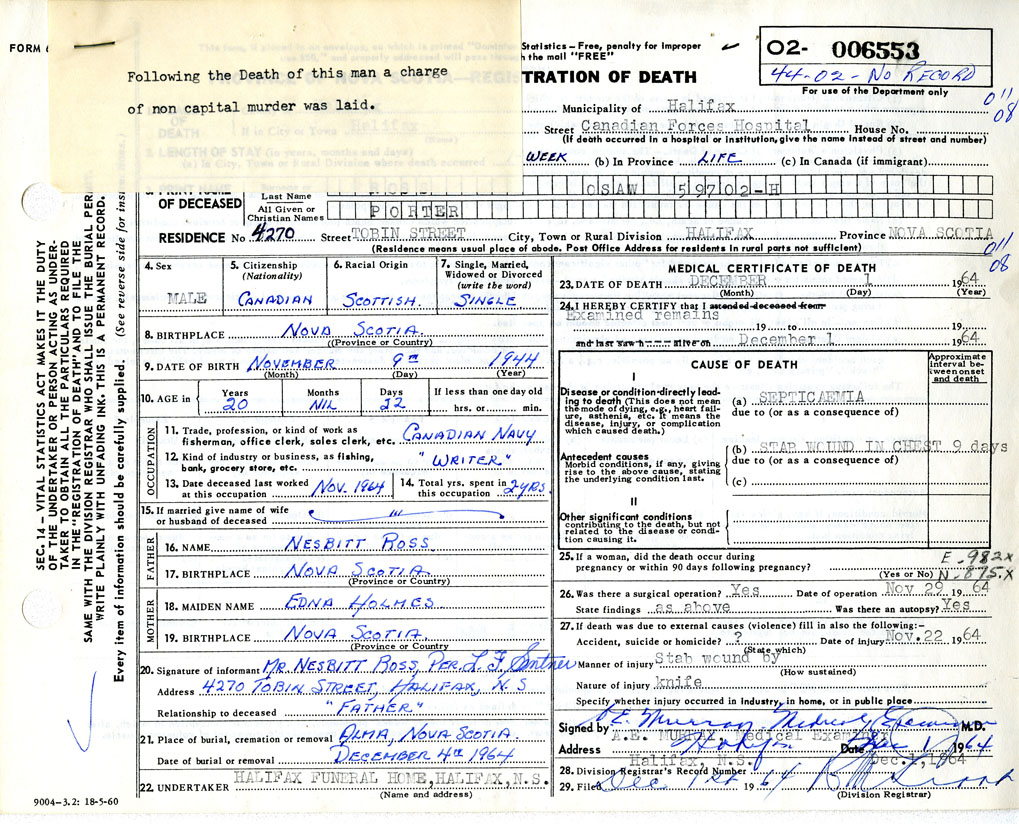 FORM 6
Following the Death of this man a charge
of non capital murder was laid.
Statistics – Free, penalty for improper
the mail "FREE"
TRATION OF DEATH
02- 006553
44-02-No RECORD
For use of the Department only
011
08
Municipality of Halifax
Street Canadian Forces Hospital House No.
(If death occurred in a hospital or institution, give the name instead of street and number)
WEEK (b) In Province LIFE (c) In Canada (if immigrant)
OF DECEASED
Last Name
OSAW 59702-H
All Given or
Christian Names
PORTER
RESIDENCE No 4270 Street TOBIN STREET City, Town or Rural Division HALIFAX Province NOVA SCOTIA
(Residence means usual place of abode. Post Office Address for residents in rural parts not sufficient)
011
08
SEC. 14 – VITAL STATISTICS ACT MAKES IT THE DUTY
OF THE UNDERTAKER OR PERSON ACTING AS UNDER-
TAKER TO OBTAIN ALL THE PARTICULARS REQUIRED
IN THE "REGISTRATION OF DEATH" AND TO FILE THE
SAME WITH THE DIVISION REGISTRAR WHO SHALL ISSUE THE BURIAL PER
WRITE PLAINLY WITH UNFADING INK. THIS IS A PERMANENT RECORD.
Every item of information should be carefully supplied. (See reverse side for ins
4. Sex
MALE
5. Citizenship
(Nationality)
CANADIAN
6. Racial Origin
SCOTTISH.
7. Single, Married,
Widowed or Divorced
(write the word)
SINGLE
8. BIRTHPLACE NOVA SCOTIA.
(Province or Country)
9. DATE OF BIRTH NOVEMBER 9TH 1944
(Month) (Day) (Year)
10. AGE in
Years Months Days If less than one day old
20 NIL 22 hrs. or min.
OCCUPATION
11. Trade, profession, or kind of work as
fisherman, office clerk, sales clerk, etc. CANADIAN NAVY
12. Kind of industry or business, as fishing,
bank, grocery store, etc. "WRITER"
13. Date deceased last worked
at this occupation NOV. 1964
14. Total yrs. spent in
this occupation 2 YRS.
15. If married give name of wife
or husband of deceased
FATHER
16. NAME NESBITT ROSS
17. BIRTHPLACE NOVA SCOTIA.
(Province or Country)
MOTHER
18. MAIDEN NAME EDNA HOLMES
19. BIRTHPLACE NOVA SCOTIA.
(Province or Country
20. Signature of informant MR. NESBITT ROSS, PER. L F Sentner
Address 4270 TOBIN STREET, HALIFAX, N.S
Relationship to deceased "FATHER"
21. Place of burial, cremation or removal ALMA, NOVA SCOTIA.
Date of burial or removal DECEMBER 4TH 1964
22. UNDERTAKER HALIFAX FUNERAL HOME, HALIFAX, N.S.
(Name and address)
9004-3.2: 18-5-60
MEDICAL CERTIFICATE OF DEATH
23. DATE OF DEATH DECEMBER 1 1964
(Month) (Day) (Year)
24. I HEREBY CERTIFY that I attended deceased from
Examined remains
19 to 19
and last saw h alive on December 1 1964
CAUSE OF DEATH
Approximate
interval be-
tween onset
and death
I
Disease or condition directly lead-
ing to death (This does not mean
the mode of dying, e.g., heart fail-
ure, asthenia, etc. It means the
disease, injury, or complication
which caused death.)
(a) SEPTICAEMIA
due to (or as a consequence of)
Antecedent causes
Morbid conditions, if any, giving
rise to the above cause, stating
the underlying condition last.
(b) STAB WOUND IN CHEST 9 days
due to (or as a consequence of)
(c)
II
Other significant conditions
contributing to the death, but not
related to the disease or condi-
tion causing it.
25. If a woman, did the death occur during
pregnancy or within 90 days following pregnancy?
(Yes or No)
E.982X
N.875.X
26. Was there a surgical operation? Yes Date of operation Nov 29 1964
State findings as above Was there an autopsy? Yes
27. If death was due to external causes (violence) fill in also the following:–
Accident, suicide or homicide? ? Date of injury Nov. 22 1964
(State which)
Manner of injury Stab wound by
(How sustained)
Nature of injury knife
Specify whether injury occurred in industry, in home, or in public place
Signed by A E. Murray Medical Examiner M.D.
A.E. MURRAY, Medical Examiner
Address Halifax Date Dec 1 1964
Halifax, N.S. Dec. 1, 1964
28. Division Registrar's Record Number
29. Filed Dec 1st 1964
(Division Registrar)